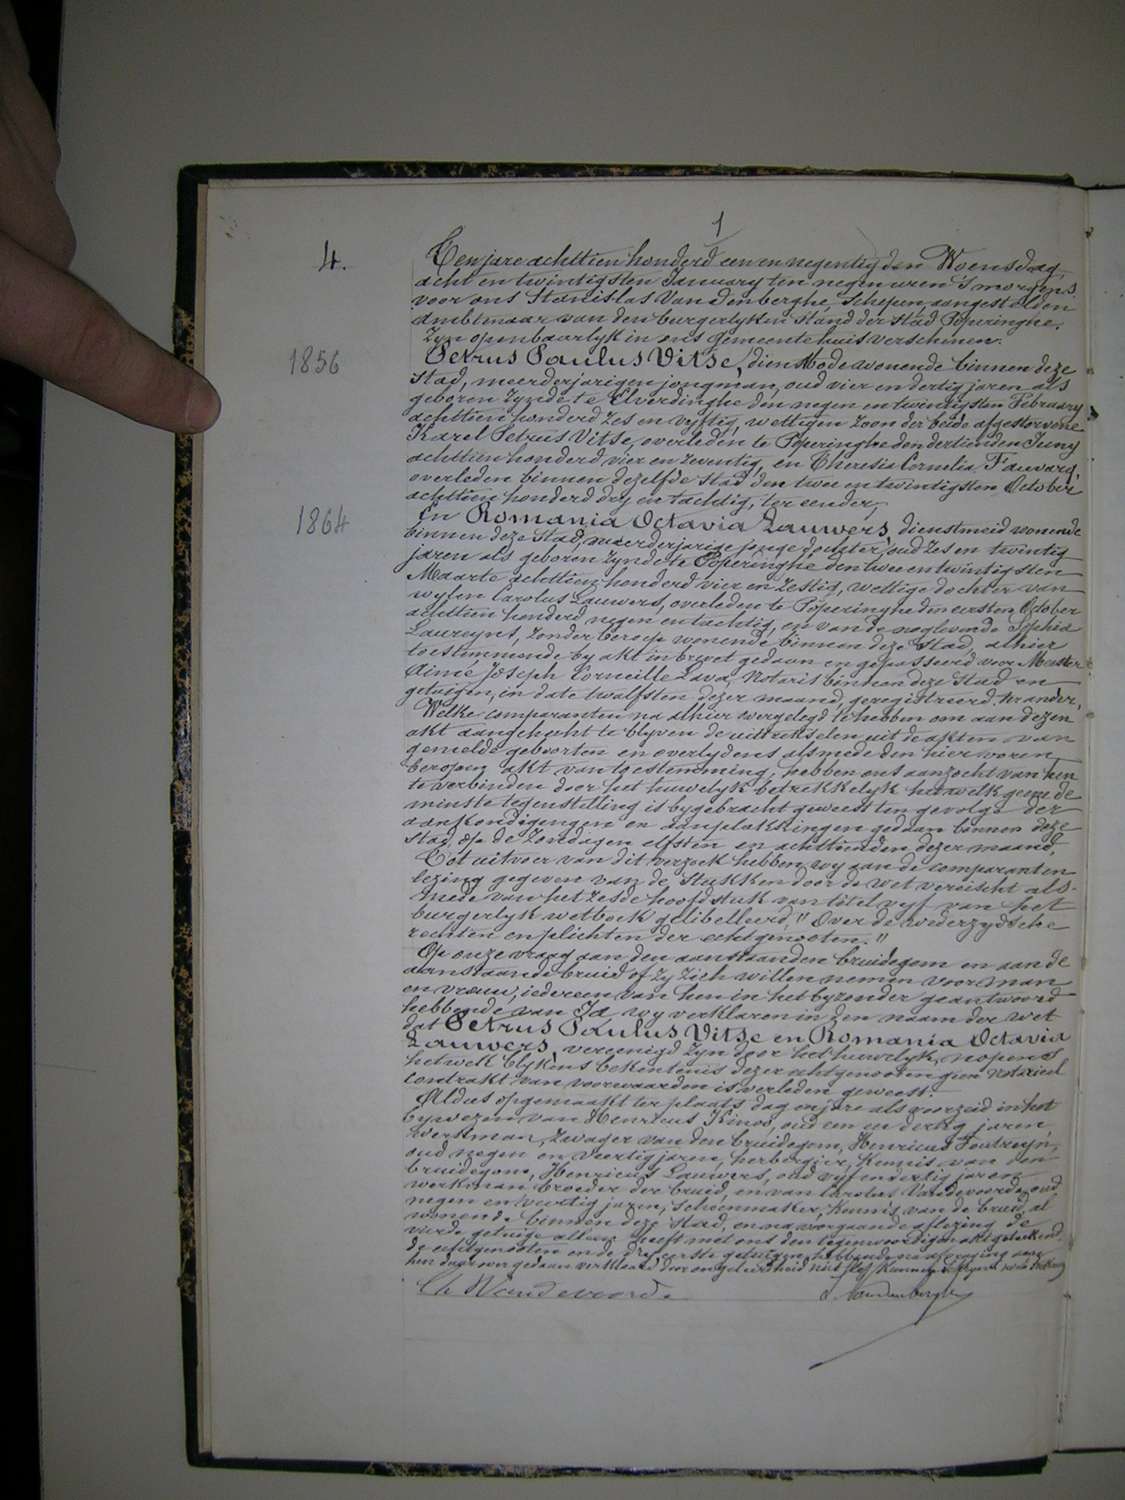 1
4.
Ten jare achttien honderd een en negentig den Woensdag,
acht en twintigsten January ten negen uren 's morgens
voor ons Stanislas Vandenberghe, schepen, aangestelden
ambtenaar van den burgerlyken stand der stad Poperinghe,
zyn openbaarlyk in ons gemeentehuis verschenen:
1856
Petrus Paulus Vitse, dienstbode wonende binnen deze
stad, meerderjarigen jongman, oud vier en dertig jaren als
geboren zynde te Elverdinghe den negen en twintigsten February
achttien honderd zes en vyftig, wettigen zoon der beide afgestorvene
Karel Petrus Vitse, overleden te Poperinghe den dertienden Juny
achttien honderd vier en zeventig, en Theresia Cornelia Fauvarq,
overleden binnen dezelfde stad den twee en twintigsten October
achttien honderd dry en tachtig, ter eender,
1864
En Romania Octavia Lauwers, dienstmeid wonende
binnen deze stad, meerderjarige jonge dochter, oud zes en twintig
jaren als geboren zynde te Poperinghe den twee en twintigsten
Maarte achttien honderd vier en zestig, wettige dochter van
wylen Carolus Lauwers, overleden te Poperinghe den eersten October
achttien honderd negen en tachtig, en van de noglevende Sophia
Laureyns, zonder beroep wonende binnen deze stad, alhier
toestemmende by akt in brevet gedaan en gepasseerd voor Meester
Aimé Joseph Corneille Lava, Notaris binnen deze stad en
getuigen, in date twalfsten dezer maand, geregistreerd, ter ander,
Welke comparanten na alhier neergelegd te hebben om aan dezen
akt aangehecht te blyven de uittrekselen uit de akten van
gemelde geboorten en overlydens alsmede den hier voren
beroepen akt van toestemming, hebben ons aanzocht van hen
te verbinden door het huwelyk betrekkelyk hetwelk geene de
minste tegenstelling is bygebracht geweest ten gevolge der
aankondigingen en aanplakkingen gedaan binnen deze
stad, op de Zondagen elfsten en achttienden dezer maand,
Tot uitvoer van dit verzoek hebben wy aan de comparanten
lezing gegeven van de stukken door de wet vereischt als-
mede van het zesde hoofdstuk van titel vyf van het
burgerlyk wetboek gelibelleerd, "Over de wederzydsche
rechten en plichten der echtgenooten."
Op onze vraag aan den aanstaanden bruidegom en aan de
aanstaande bruid of zy zich willen nemen voor man
en vrouw, iedereen van hen in het byzonder geantwoord
hebbende van Ja, wy verklaren in den naam der wet
dat Petrus Paulus Vitse en Romania Octavia
Lauwers, vereenigd zyn door het huwelyk, nopens
hetwelk blykens bekentenis dezer echtgenooten geen notarieel
contrakt van voorwaarden is verleden geweest.
Aldus opgemaakt ter plaats, dag en jare als voorzeid in het
bywezen van Henricus Kinoo, oud een en dertig jaren,
werkman, zwager van den bruidegom, Henricus Foutreyn,
oud negen en veertig jaren, herbergier, kennis van den
bruidegom, Henricus Lauwers, oud vyf en dertig jaren
werkman broeder der bruid, en van Carolus Vandevoorde, oud
negen en veertig jaren, schoenmaker, kennis van de bruid, al
wonende binnen deze stad, en na voorgaande aflezing de
vierde getuige alleen heeft met ons den tegenwoordigen akt geteekend,
de echtgenooten en de dry eerste getuigen hebbende na afvraging aan
hen daarover gedaan verklaard door ongeleerdheid niet te kunnen
Ch Vandevoorde
S. Vandenberghe